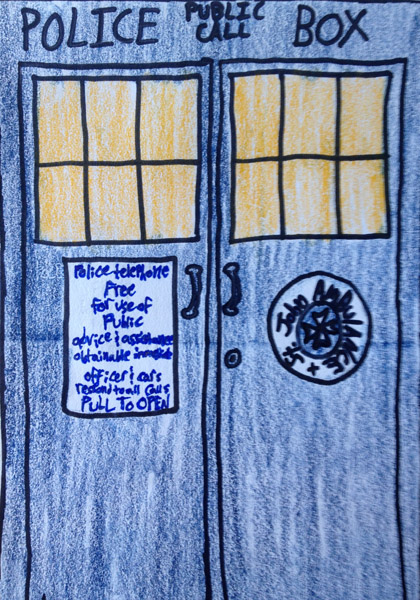 POLICE PUBLIC CALL BOX
Police telephone
free
for use of
Public
advice & assistance
obtainable immediate
officer & cars
respond to all calls
PULL TO OPEN
St. JOHN AMBULANCE